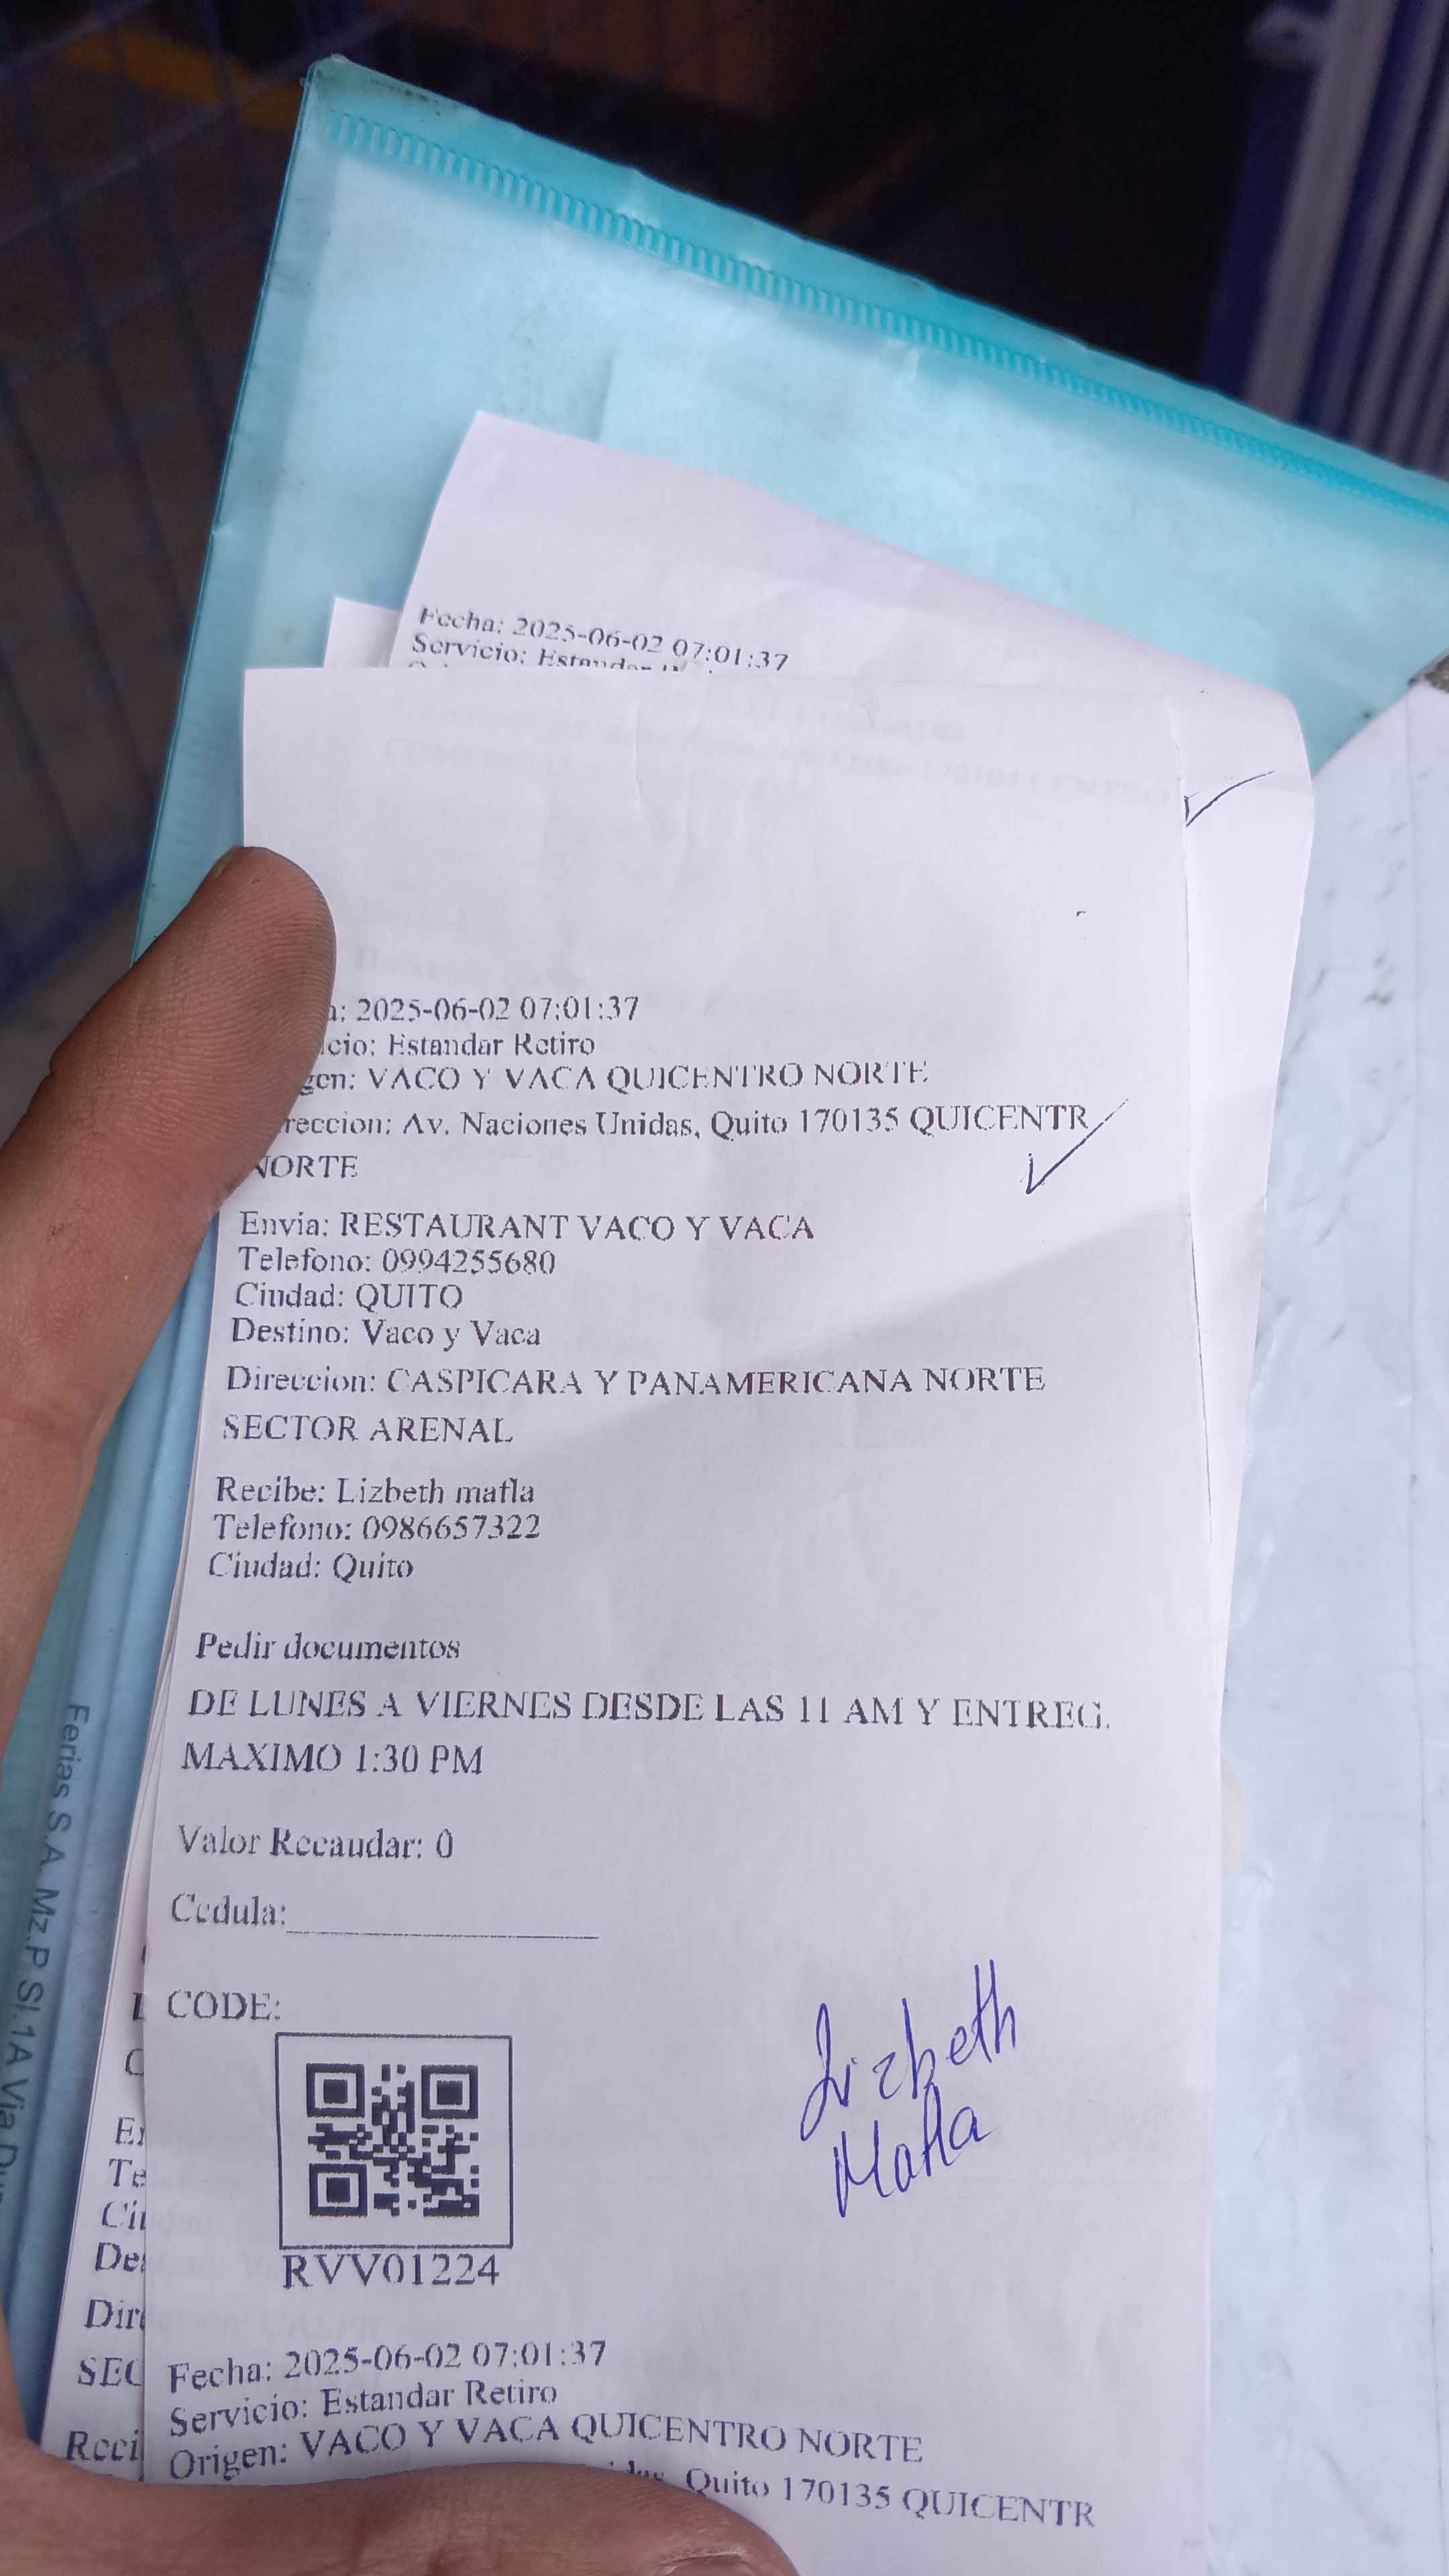 Fecha: 2025-06-02 07:01:37
Servicio: Estandar
a: 2025-06-02 07:01:37
icio: Estandar Retiro
gen: VACO Y VACA QUICENTRO NORTE
reccion: Av. Naciones Unidas, Quito 170135 QUICENTR
NORTE
Envia: RESTAURANT VACO Y VACA
Telefono: 0994255680
Ciudad: QUITO
Destino: Vaco y Vaca
Direccion: CASPICARA Y PANAMERICANA NORTE
SECTOR ARENAL
Recibe: Lizbeth mafla
Telefono: 0986657322
Ciudad: Quito
Pedir documentos
DE LUNES A VIERNES DESDE LAS 11 AM Y ENTREG.
MAXIMO 1:30 PM
Valor Recaudar: 0
Cedula:
CODE:
Lizbeth
Mafla
RVV01224
Fecha: 2025-06-02 07:01:37
Servicio: Estandar Retiro
Origen: VACO Y VACA QUICENTRO NORTE
Quito 170135 QUICENTR
En
Te
Ciu
Des
Dire
SEC
Reci
Ferias S.A. Mz.P Sl.1A Via